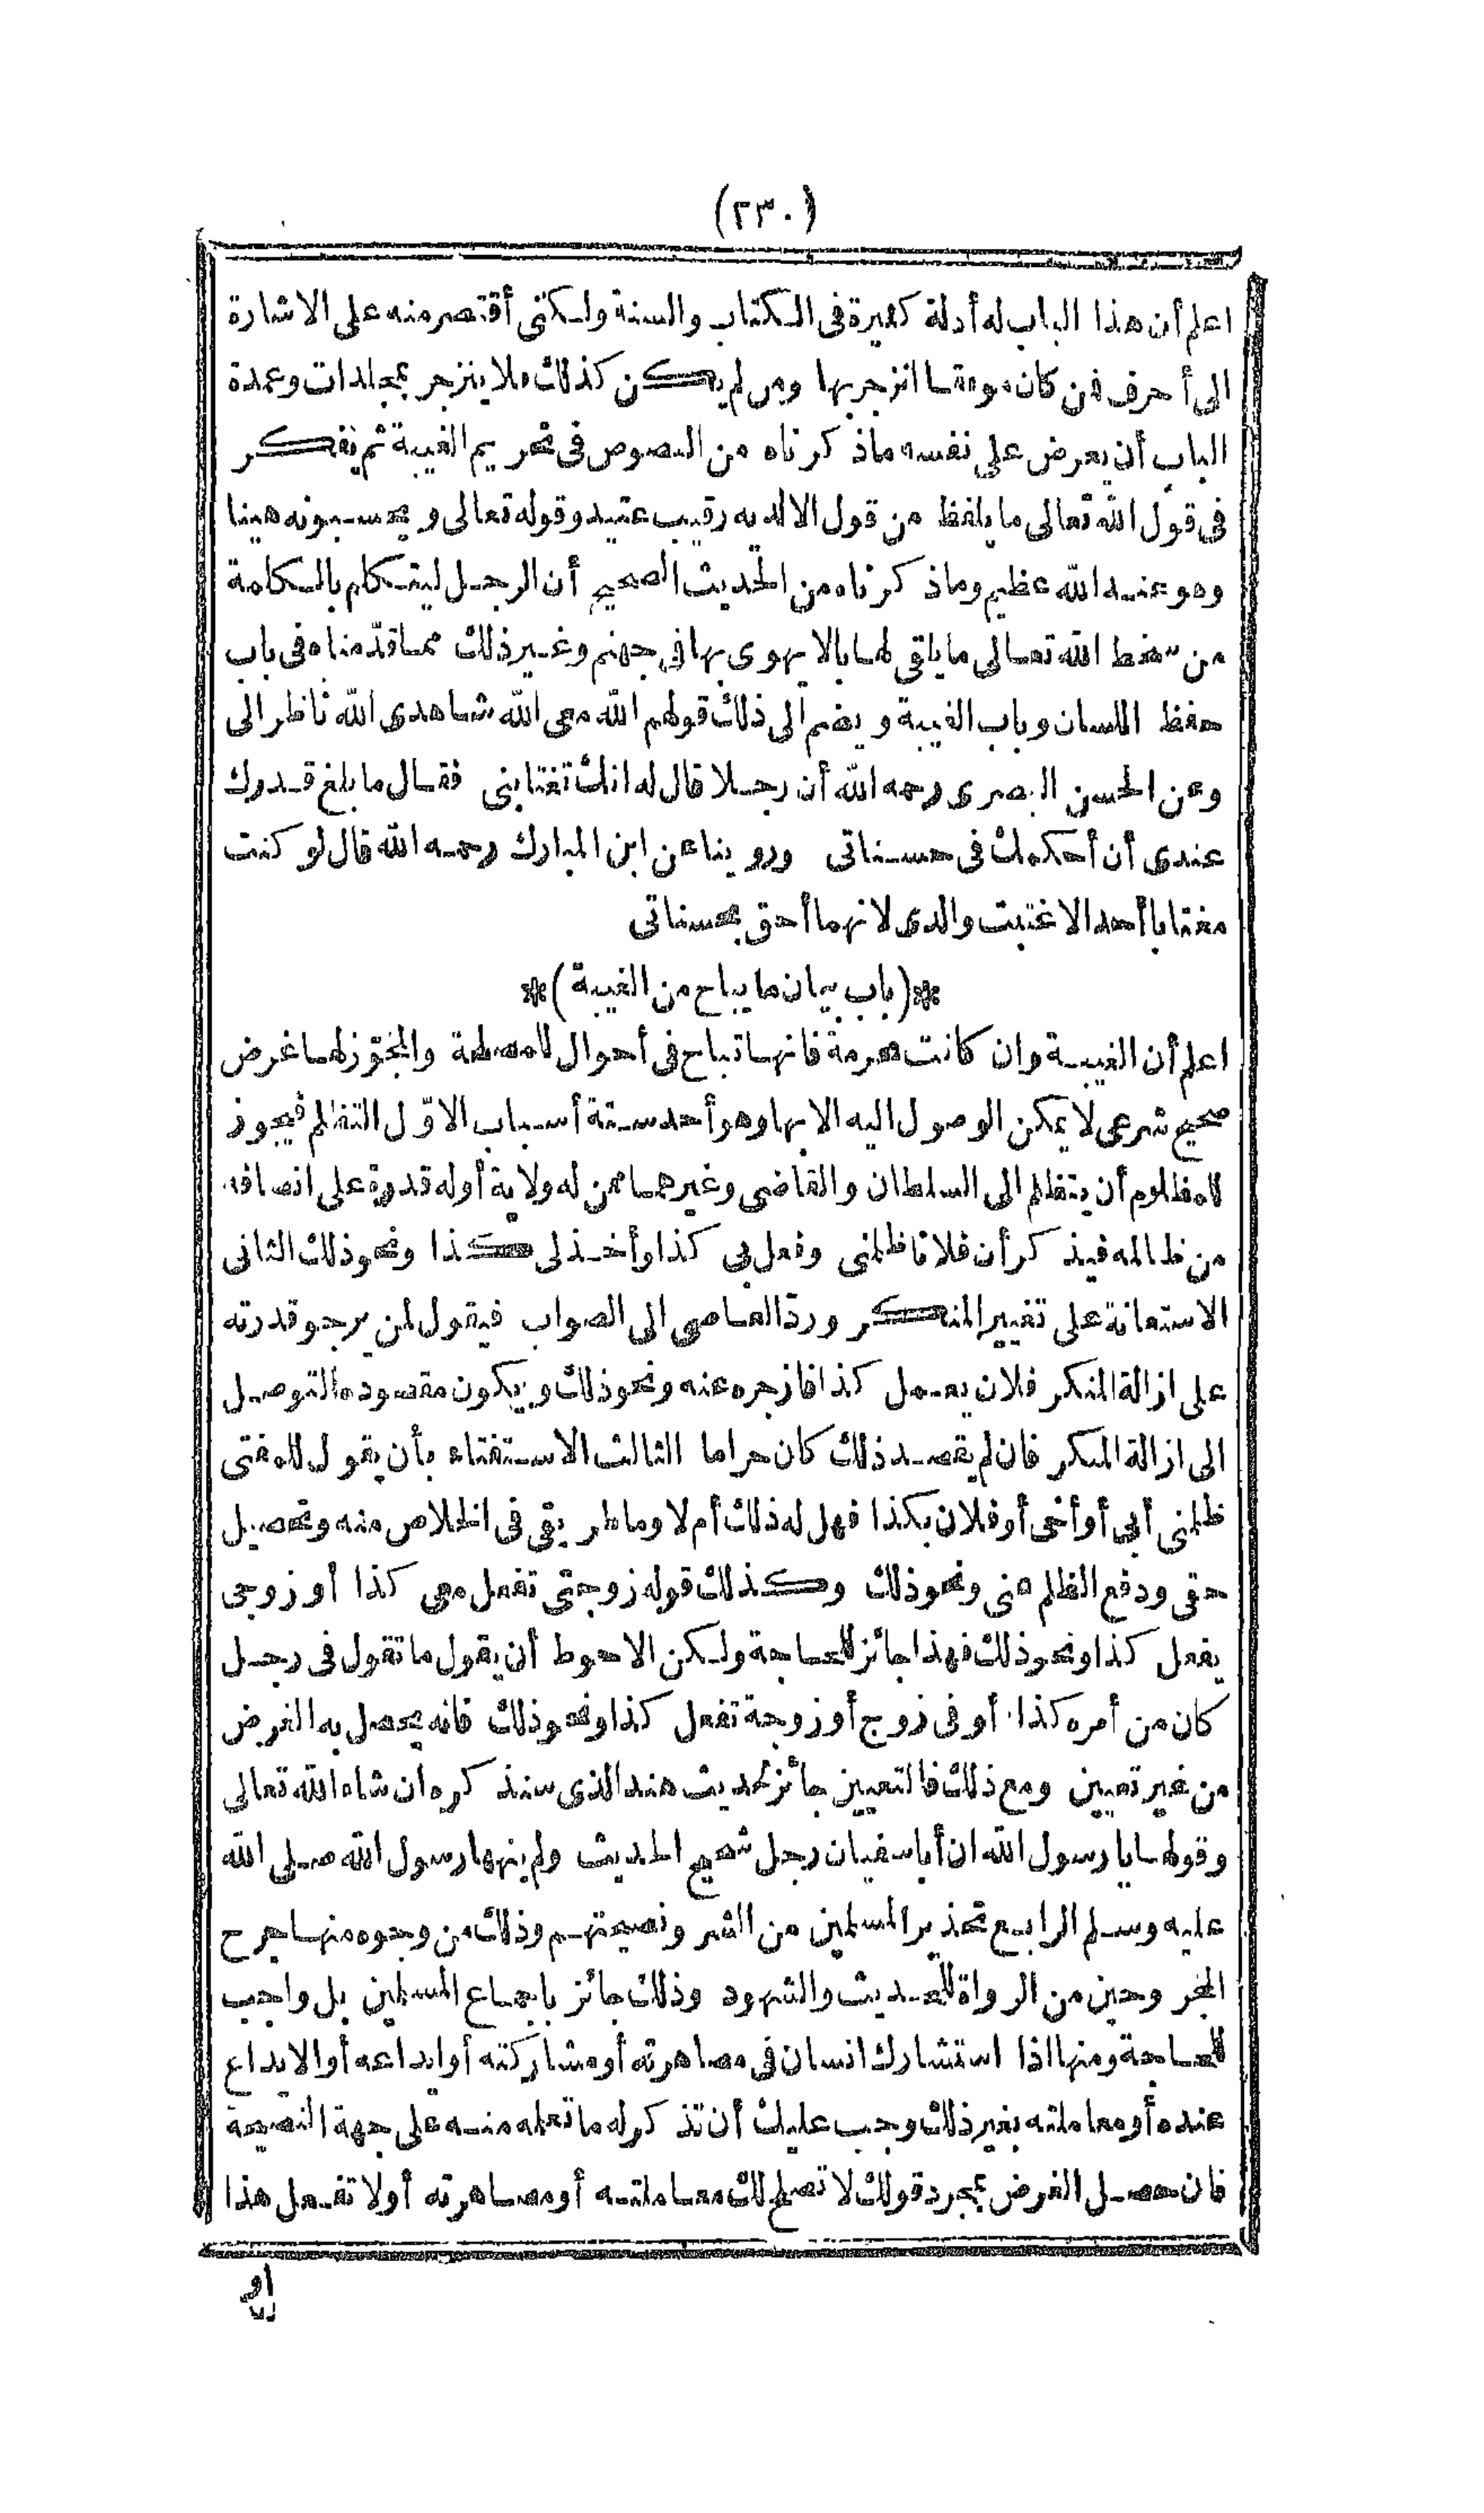 (٢٣٠)
اعلم أن هذا الباب له أدلة كثيرة في الكتاب والسنة ولكني أقتصر منه على الاشارة
الى أحرف فمن كان موفقا انزجر بها ومن لم يكن كذلك فلا ينزجر بمجلدات وعمدة
الباب أن يعرض على نفسه ماذكرناه من النصوص في تحريم الغيبة ثم يفكر
في قول الله تعالى ما يلفظ من قول الا لديه رقيب عتيد وقوله تعالى ويحسبونه هينا
وهو عند الله عظيم وماذكرناه من الحديث الصحيح أن الرجل ليتكلم بالكلمة
من سخط الله تعالى ما يلقي لها بالا يهوى بها في جهنم وغير ذلك مما قدّمناه في باب
حفظ اللسان وباب الغيبة ويضم الى ذلك قولهم الله معى الله شاهدى الله ناظر الى
وعن الحسن البصرى رحمه الله أن رجلا قال له انك تغتابنى فقال ما بلغ قدرك
عندى أن أحكمك في حسناتى وروينا عن ابن المبارك رحمه الله قال لو كنت
مغتابا أحدا لاغتبت والدى لانهما أحق بحسناتى
*(باب بيان ما يباح من الغيبة)*
اعلم أن الغيبة وان كانت محرمة فانها تباح في أحوال للمصلحة والمجوّز لها غرض
صحيح شرعى لا يمكن الوصول اليه الا بها وهو أحد ستة أسباب الاوّل التظلم فيجوز
للمظلوم أن يتظلم الى السلطان والقاضى وغيرهما ممن له ولاية أو له قدرة على انصافه
من ظالمه فيذكر أن فلانا ظلمنى وفعل بى كذا وأخذ لى كذا ونحو ذلك الثانى
الاستعانة على تغيير المنكر وردّ العاصى الى الصواب فيقول لمن يرجو قدرته
على ازالة المنكر فلان يعمل كذا فازجره عنه ونحو ذلك ويكون مقسوده التوصل
الى ازالة المنكر فان لم يقصد ذلك كان حراما الثالث الاستفتاء بأن يقول للمفتى
ظلمنى أبى أو أخى أو فلان بكذا فهل له ذلك أم لا وما طريقى في الخلاص منه وتحصيل
حقى ودفع الظلم عنى ونحو ذلك وكذلك قوله زوجتى تفعل معى كذا أو زوجى
يفعل كذا ونحو ذلك فهذا جائز للحاجة ولكن الاحوط أن يقول ما تقول في رجل
كان من أمره كذا أو في زوج أو زوجة تفعل كذا ونحو ذلك فانه يحصل به الغرض
من غير تعيين ومع ذلك فالتعيين جائز لحديث هند الذى سنذكره ان شاء الله تعالى
وقولها يا رسول الله ان أبا سفيان رجل شحيح الحديث ولم ينهها رسول الله صلى الله
عليه وسلم الرابع تحذير المسلمين من الشر ونصيحتهم وذلك من وجوه منها جرح
المجروحين من الرواة للحديث والشهود وذلك جائز باجماع المسلمين بل واجب
للحاجة ومنها اذا استشارك انسان في مصاهرته أو مشاركته أو ايداعه أو الايداع
عنده أو معاملته بغير ذلك وجب عليك أن تذكر له ما تعلمه منه على جهة النصيحة
فان حصل الغرض بمجرد قولك لا تصلح لك معاملته أو مصاهرته أو لا تفعل هذا
او